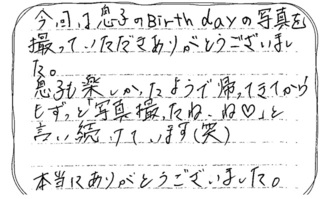 今回は息子のBirth dayの写真を
撮っていただきありがとうございまし
た。
息子も楽しかったようで帰ってきてから
もずっと「写真撮ったね、ね♡」と
言い続けています(笑)
本当にありがとうございました。